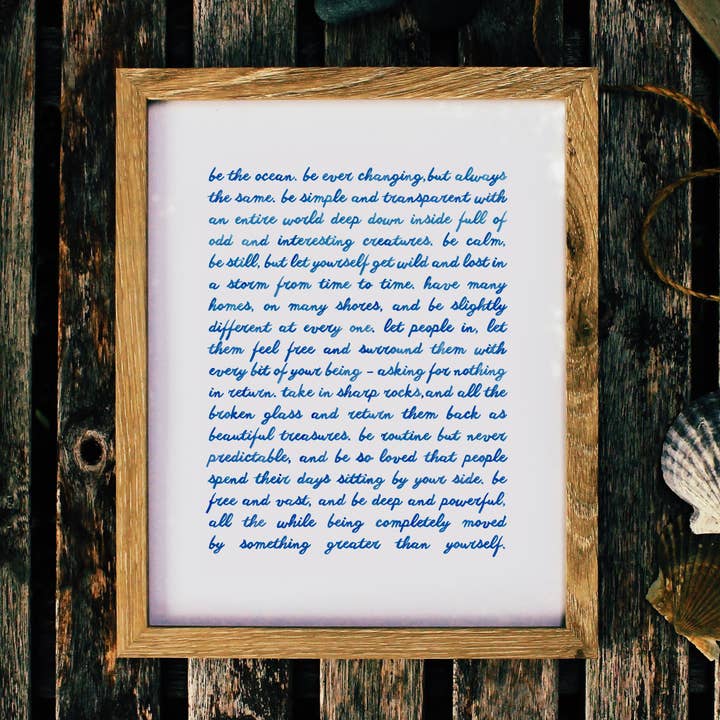 be the ocean. be ever changing, but always
the same. be simple and transparent with
an entire world deep down inside full of
odd and interesting creatures. be calm,
be still, but let yourself get wild and lost in
a storm from time to time. have many
homes, on many shores, and be slightly
different at every one. let people in, let
them feel free and surround them with
every bit of your being – asking for nothing
in return. take in sharp rocks, and all the
broken glass and return them back as
beautiful treasures. be routine but never
predictable, and be so loved that people
spend their days sitting by your side. be
free and vast, and be deep and powerful,
all the while being completely moved
by something greater than yourself.